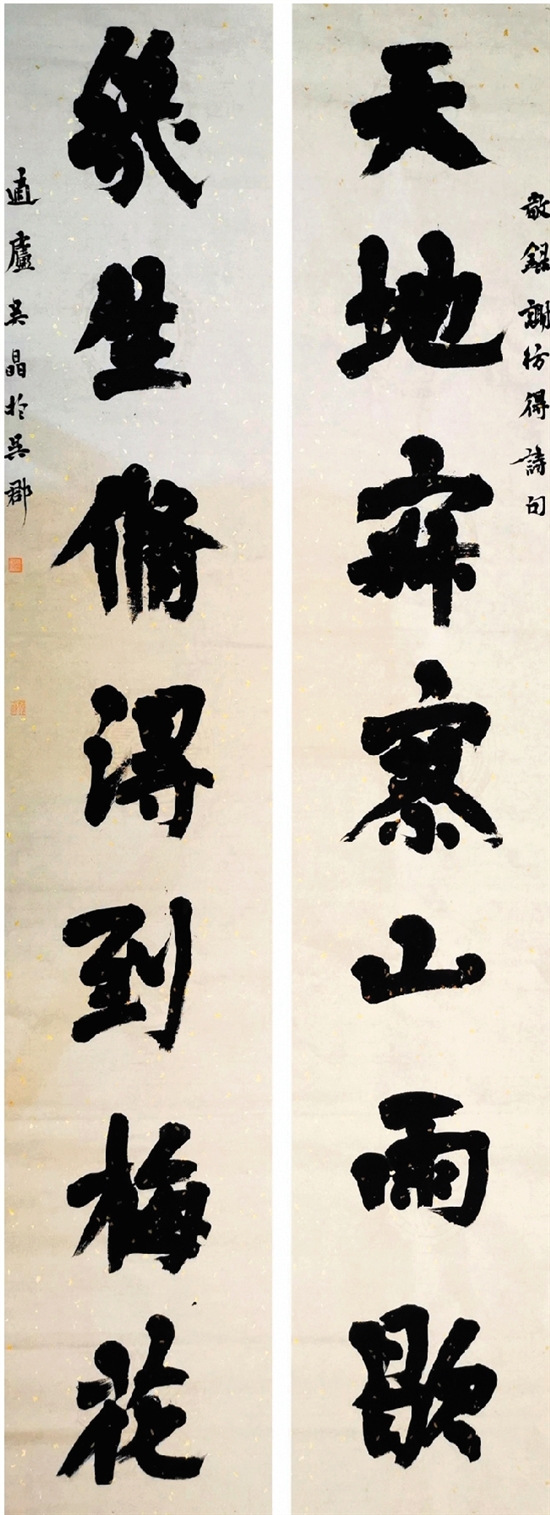 敬錄謝枋得詩句
天地寂寥山雨歇
幾生脩得到梅花
廬吳晶於吳郡